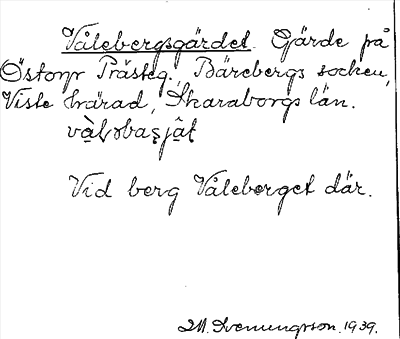 Vålebergsgärdet. Gärde på
Östorp Prästeg., Bärebergs socken,
Viste härad, Skaraborgs län.
Vid berg Våleberget där.
M. Svenungsson. 1939.